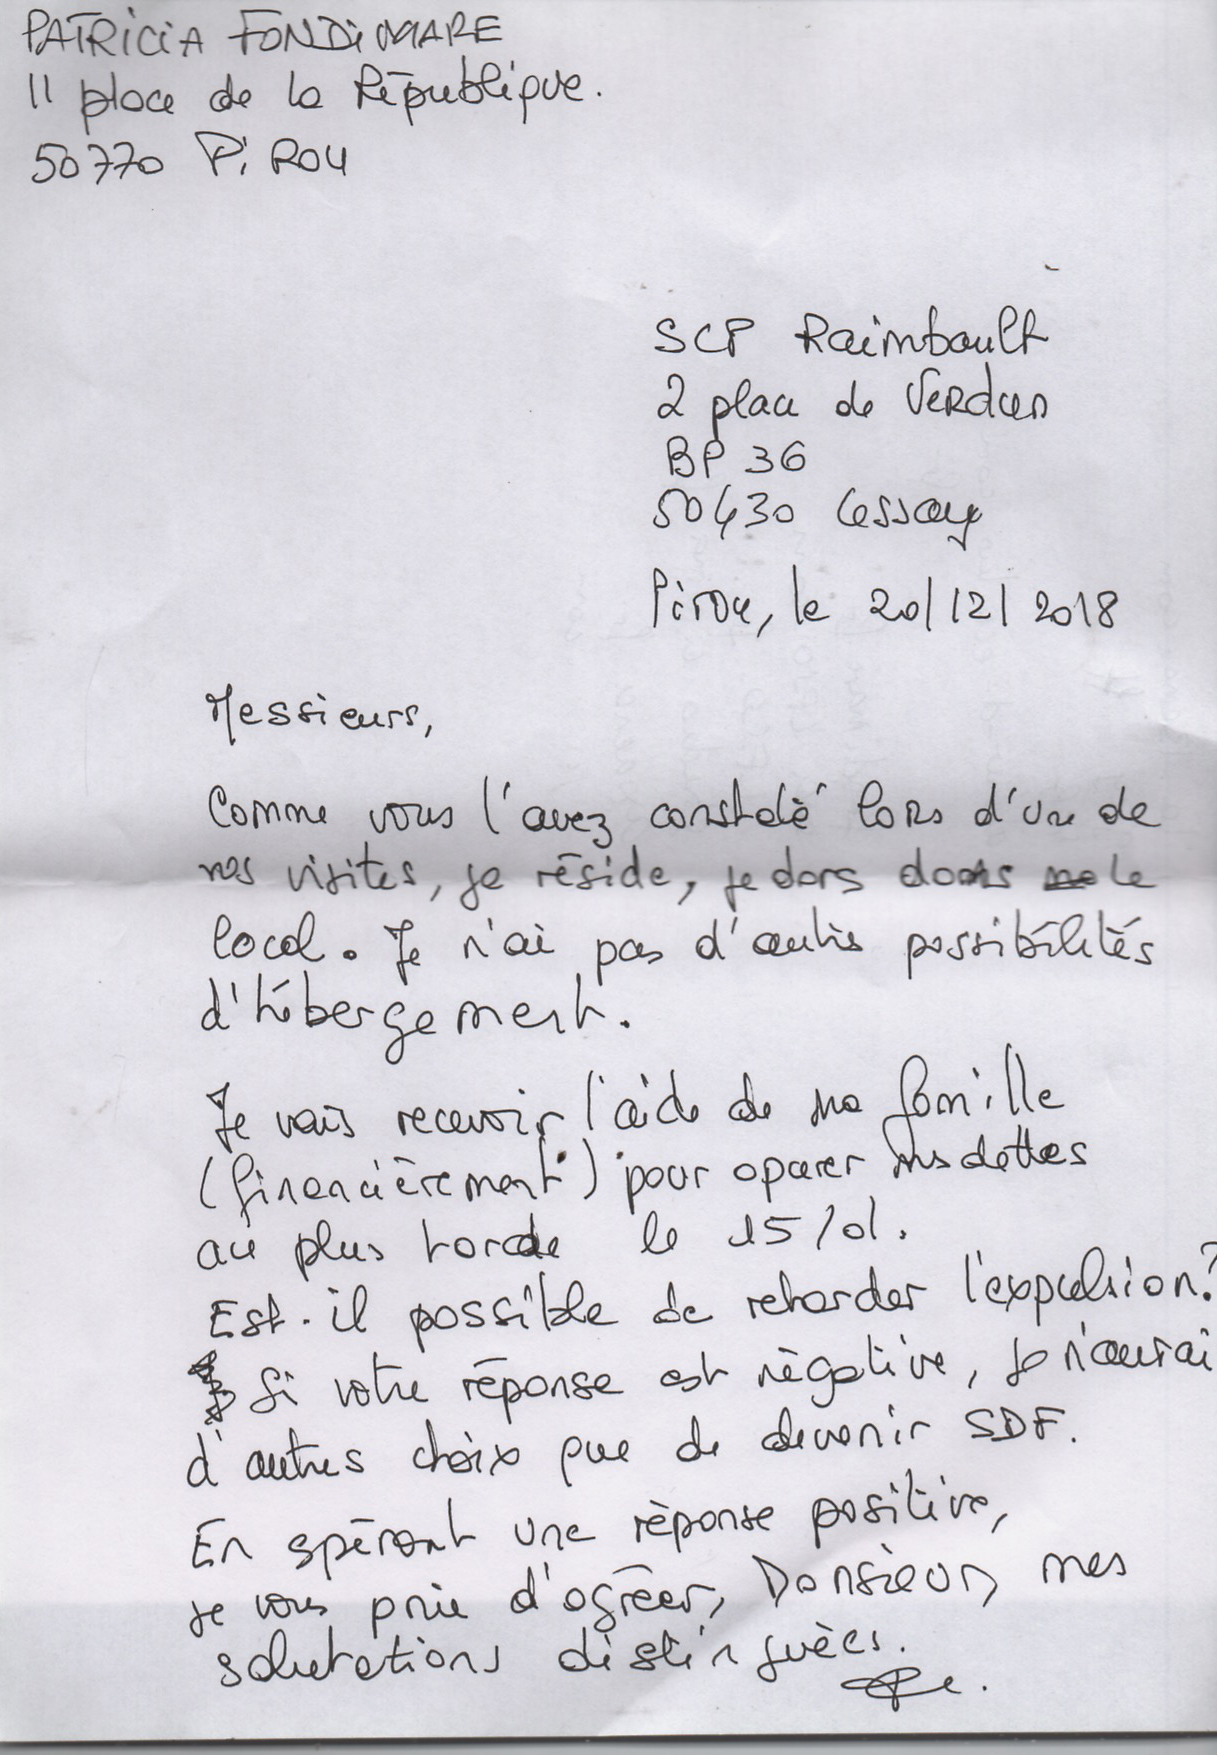 PATRICIA FONDIMARE
11 place de la République.
50770 PiROU
SCP Raimbault
2 place de Verdun
BP 36
50430 Lessay
Pirou, le 20/12/2018
Messieurs,
Comme vous l'avez constaté lors d'une de
vos visites, je réside, je dors dans le
local. Je n'ai pas d'autres possibilités
d'hébergement.
Je vais recevoir l'aide de ma famille
(financièrement) pour apurer mes dettes
au plus tard le 15/01.
Est-il possible de retarder l'expulsion?
Si votre réponse est négative, je n'aurai
d'autres choix que de devenir SDF.
En spérant une réponse positive,
je vous prie d'agréer, Monsieur, mes
salutations distinguées.